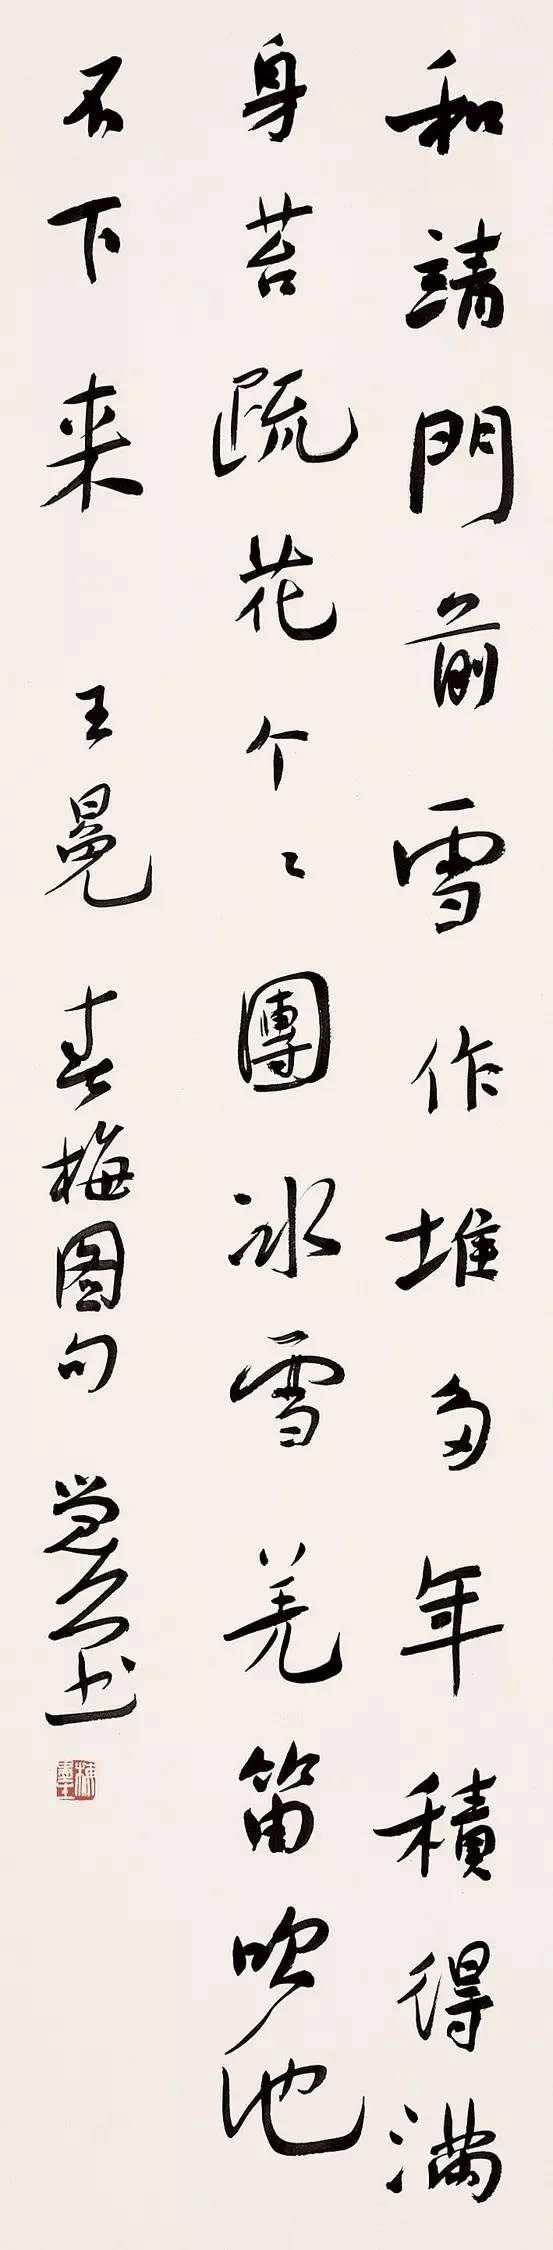 和靖門前雪作堆多年積得满
身苔疏花个々團冰雪羌笛吹他
不下来 王冕 春梅图句 书